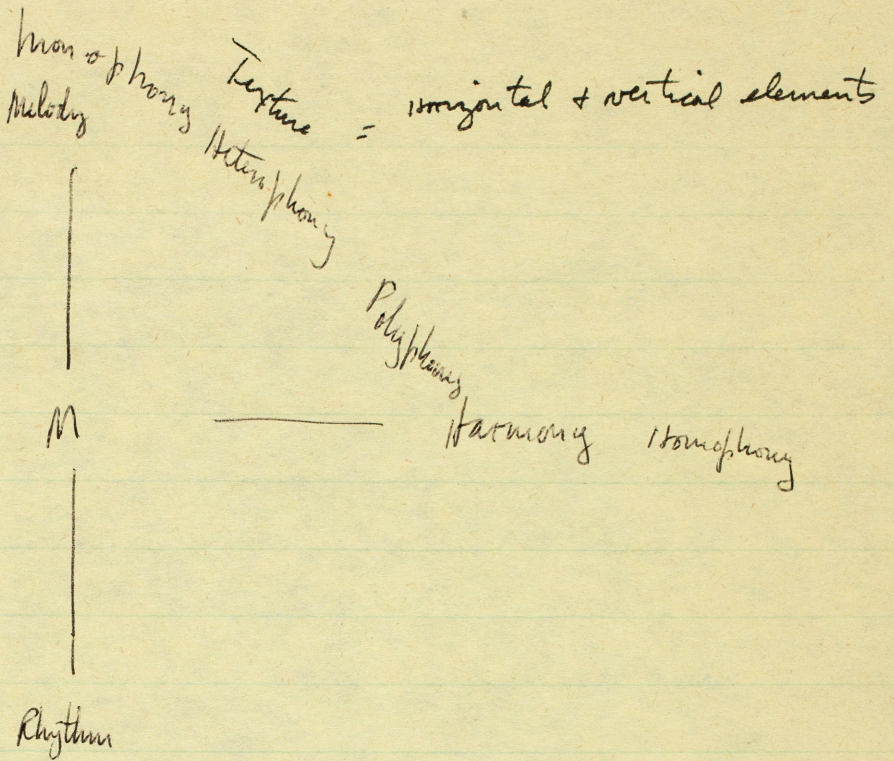 Monophony
Melody
Texture = Horizontal + vertical elements
Heterophony
Polyphony
M
Harmony Homophony
Rhythm